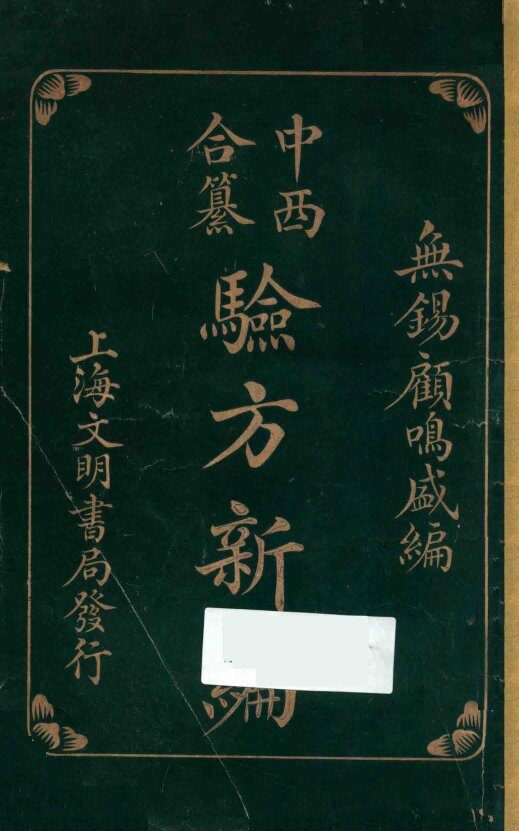 無錫顧鳴盛編
中西
合纂
驗方新編
上海文明書局發行